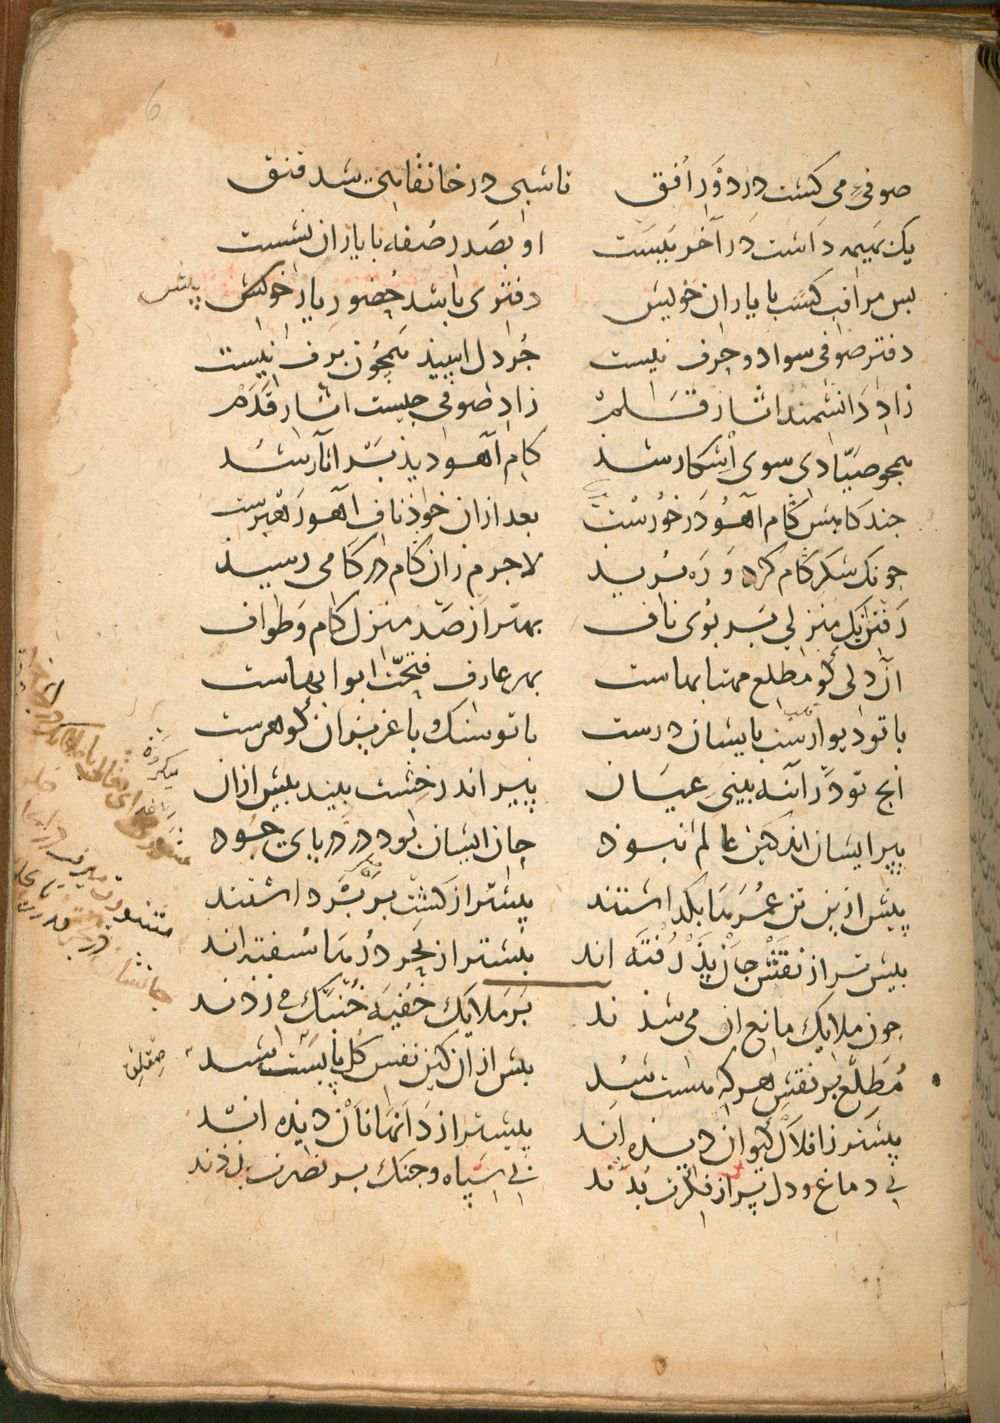 6
صوفیء می کشت در دَورِ اُفق    تا شبی در خانقاهی شد قنق
یک بهیمه داشت در آخر ببست    او بصدر صُفه با یاران نشست
بس مراقب کشت با یاران خویش    دفتری باشد حضور یار خویش پیش
دفتر صوفی سواد و حرف نیست    جز دل اسپید همچون برف نیست
زاد دانشمند اثار قلم    زاد صوفی چیست اثار قدم
همجو صیّادی سوی اشکار شد    کام آهو دید بر اثار شد
جند کاهش کام آهو در خورست    بعد ازان خوذ ناف آهو رهبرست
جونک شکر کام کرد و ره برید    لا جرم زان کام در کامی رسید
رفتن یک منزلی بر بوی ناف    بهتر از صد منزل کام و طواف
آن دلی کو مطلع مهتابهاست    بهر عارف فتحت ابوابهاست
با تو دیوارست با یشان درست    با تو سنک و با عزیزان کوهرست
انج تو در آینه بینی عیان    پیر اندر خشت بیند بیش ازان
پیر ایشان اند کین عالم نبود    جان ایشان بود در دریای جود
پیش ازین تن عمرها بکداشتند    پیشتر از کشت بر برداشتند
بیش تر از نقش جان پذرفته اند    بیشتر از بحر دُرها سفته اند
جون ملایک مانع آن می شدند    بر ملایک خفیه خنبک می زدند
مطلع بر نقش هر که هست شد    بیش ازان کین نفس کل پابست شد
پیشتر ز افلاک کیوان دیده اند    پیشتر از دانها نان دیده اند
نی دماغ و دل پر از فکرت بدند    نی سپاه و جنک بر نصرت زدند